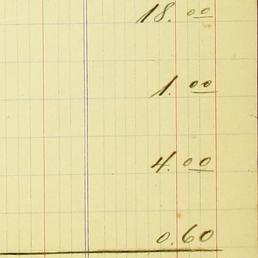 18.00
1.00
4.00
0.60